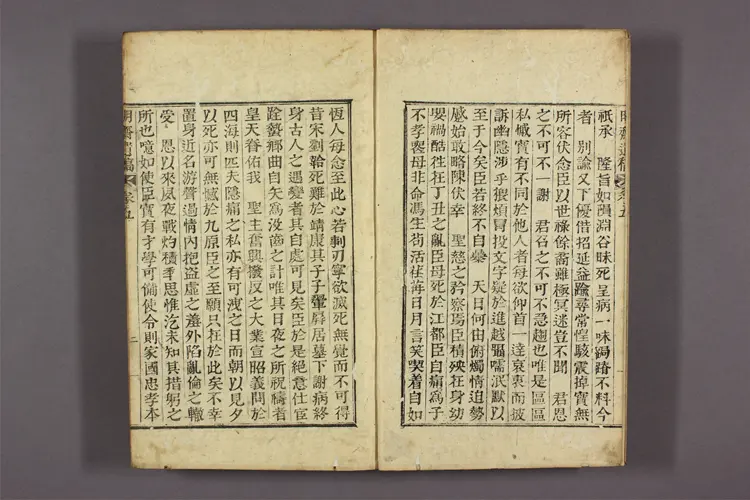 明齋遺稿 卷五
祇承 隆旨如隕淵谷昧死呈病一味跼蹐不料今
者 別諭又下優借招延益踰尋常惶駭震掉實無
所容伏念臣以世祿餘裔雖極冥迷豈不聞 君恩
之不可不一謝 君召之不可不急趨也唯是區區
私慽實有不同於他人者每欲仰首一達哀衷而疲
訴幽隱涉乎猥煩冒投文字疑於進越囁嚅泯默以
至于今矣臣若終不自暴 天日何由俯燭情迫勢
慼始敢略陳伏幸 聖慈之矜察焉臣積殃在身幼
嬰禍酷往在丁丑之亂臣母死於江都臣自痛爲子
不孝喪母非命馮生苟活荏苒日月言笑喫着自如
恆人每念至此心若剚刃寧欲滅死無覺而不可得
昔宋劉韐死難於靖康其子子翬屛居墓下謝病終
身古人之遇變者其自處可見矣臣於是絕意仕宦
薶鄕曲自矢爲沒齒之計唯其日夜之所祝禱者
皇天眷佑我 聖主奮興撥反之大業宣昭義問於
四海則匹夫隱痛之私亦有可洩之日而朝以見夕
以死亦可無憾於九原臣之至願只在於此矣不幸
置身近名游聲過情內抱盜虛之羞外陷亂倫之轍
受 恩以來夙夜戰灼積季思惟迄未知其措躬之
所也噫如使臣實有才學可備使令則家國忠孝本
明齋遺稿 卷五 二